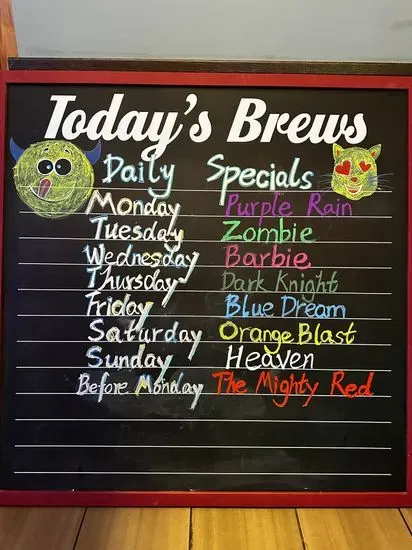 Today's Brews
Daily Specials
Monday Purple Rain
Tuesday Zombie
Wednesday Barbie
Thursday Dark Knight
Friday Blue Dream
Saturday Orange Blast
Sunday Heaven
Before Monday The Mighty Red